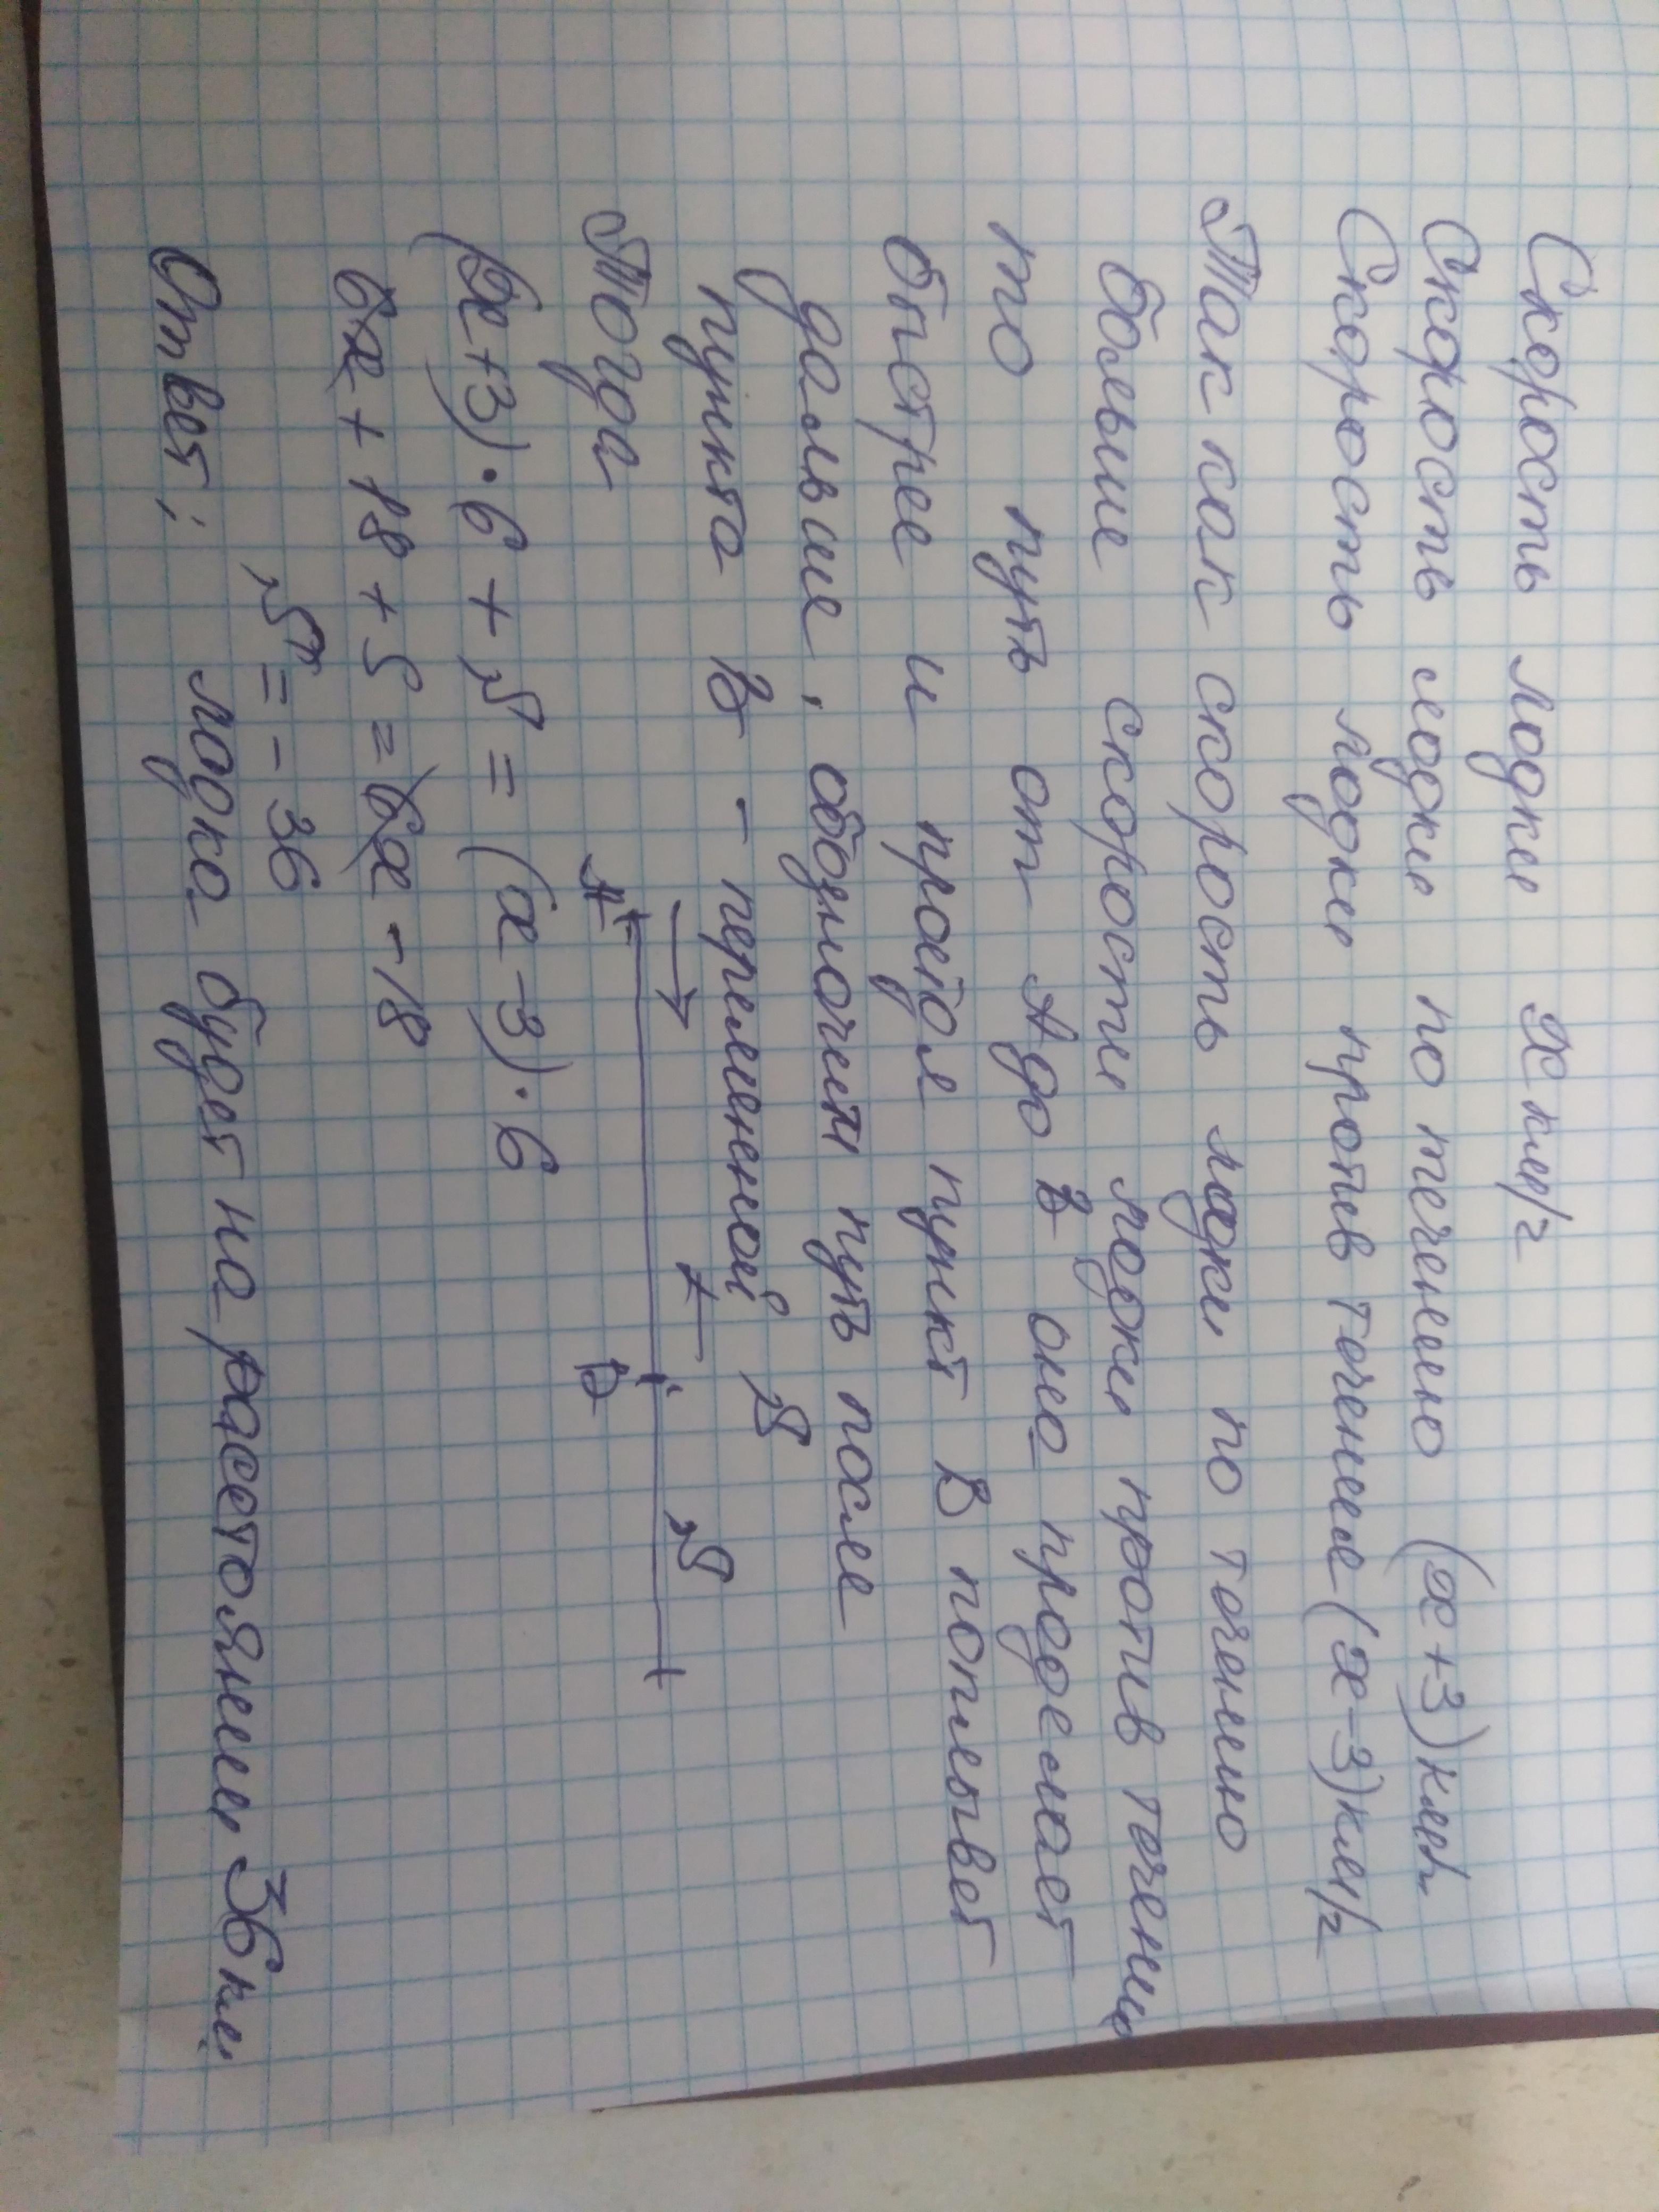 Скорость лодки x км/г
Скорость лодки по течению (x+3) км/ч
Скорость лодки против течение (x-3) км/г
Так как скорость лодки по течению
больше скорости лодки против течени
то путь от А до В она проделает
быстрее и пройдя пункт В поплывет
дальше, обозначем путь после
пункта В - переменной S
Тогда
A B S
(x+3)·6 + S = (x-3)·6
6x + 18 + S = 6x - 18
S = - 36
Ответ: лодка будет на расстоянии 36 км.